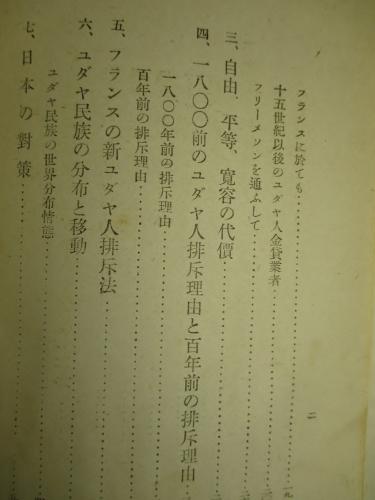 フランスに於ても
十五世紀以後のユダヤ人金貸業者
フリーメソンを通ふして
三、自由、平等、寛容の代價
四、一八〇〇前のユダヤ人排斥理由と百年前の排斥理由
一八〇〇年前の排斥理由
百年前の排斥理由
五、フランスの新ユダヤ人排斥法
六、ユダヤ民族の分布と移動
ユダヤ民族の世界分布情態
七、日本の對策
二